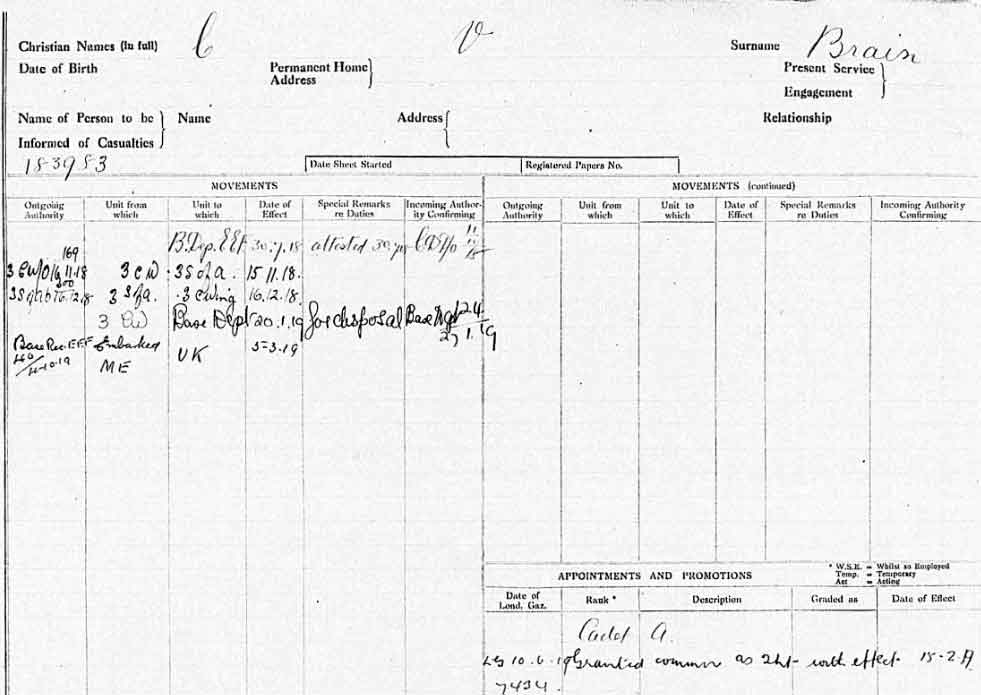 Christian Names (in full) C V Surname Brain
Date of Birth Permanent Home Address Present Service Engagement
Name of Person to be Informed of Casualties Name Address Relationship
183983
Date Sheet Started Registered Papers No.
MOVEMENTS MOVEMENTS (continued)
Outgoing Authority Unit from which Unit to which Date of Effect Special Remarks re Duties Incoming Authority Confirming Outgoing Authority Unit from which Unit to which Date of Effect Special Remarks re Duties Incoming Authority Confirming
B. Dep. EEF 30.7.18 attested
169
11.18 3 S of a. 15.11.18.
200
12.18 3 S of a. 3 C Wing 16.12.18.
3 CW Base Dept 20.1.19 for disposal Base 24
27.1.19
Base Rec. EEF Embarked UK 5-3-19
ME
* W.S.E. = Whilst so Employed
Temp. = Temporary
Act = Acting
APPOINTMENTS AND PROMOTIONS
Date of Lond. Gaz. Rank * Description Graded as Date of Effect
Cadet A.
LG 10.6.19 Granted commn as 2Lt with effect 15-2-19
7434.